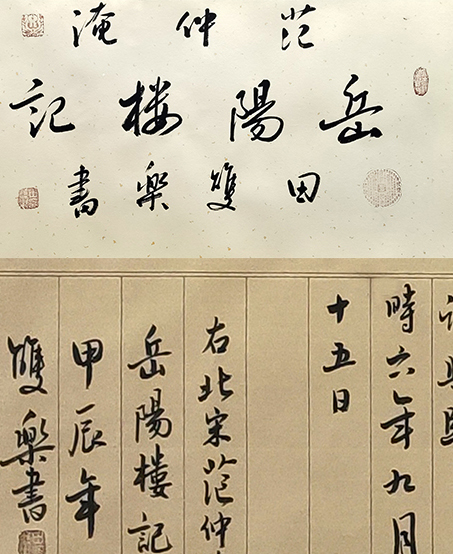 范仲淹
岳陽楼記
田雙樂書
時六年九月
十五日
右北宋范仲
岳陽樓記
甲辰年
雙樂書